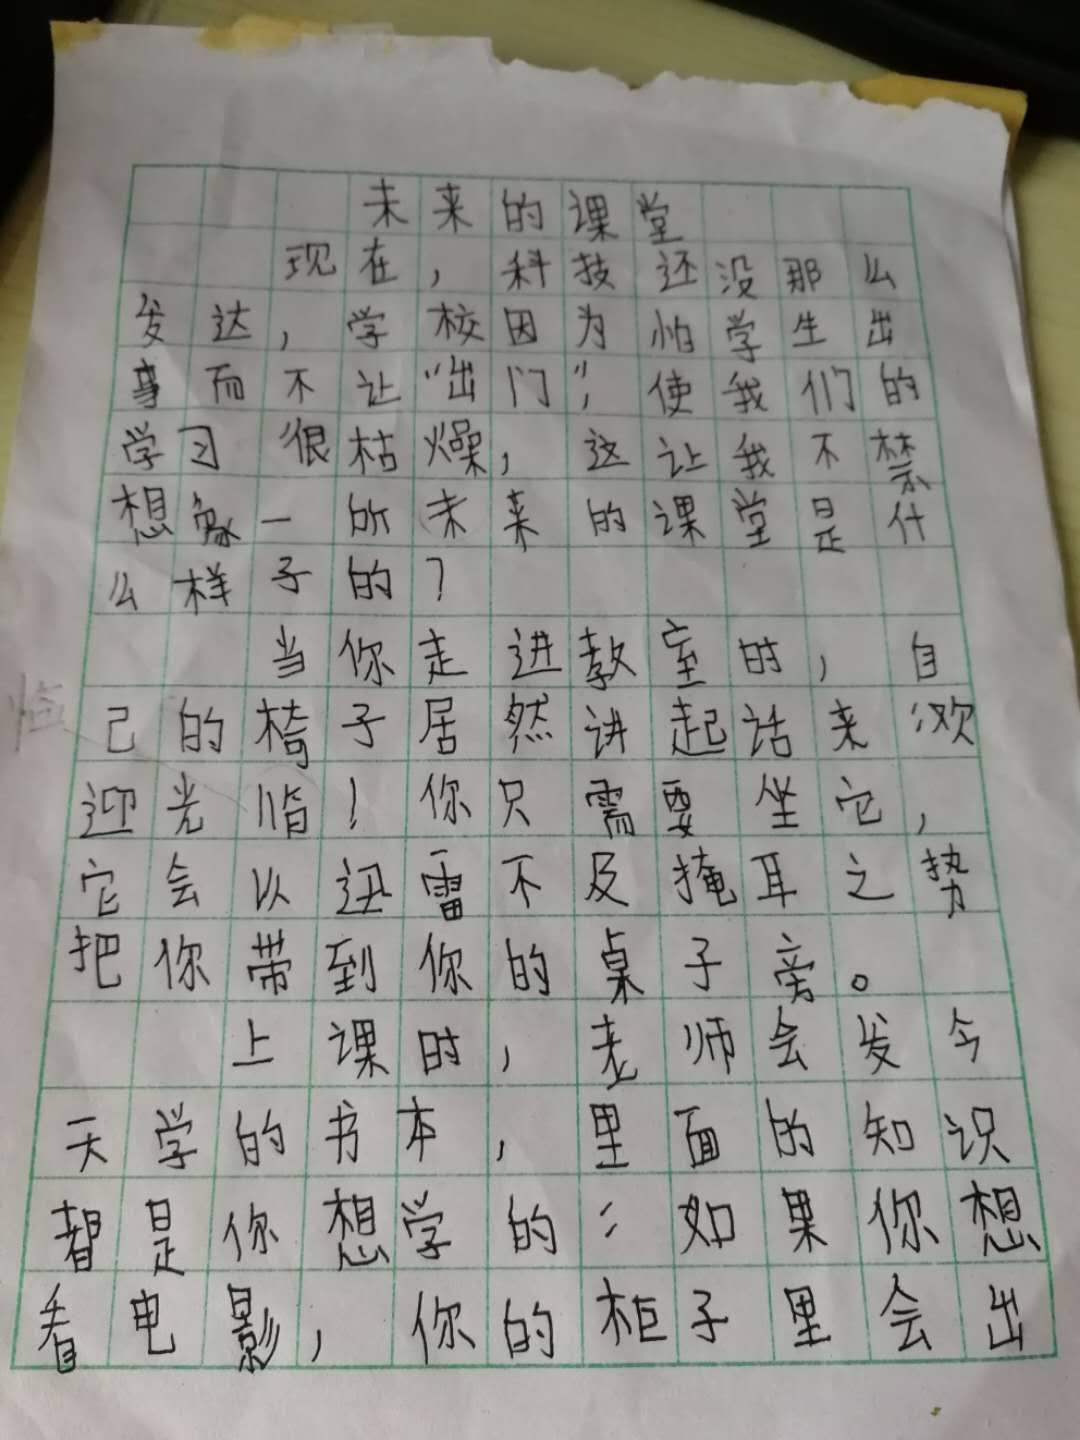 未来的课堂
现在，科技还没那么
发达，学校因为怕学生出
事而不让“出门”，使我们的
学习很枯燥，这让我不禁
想象一所未来的课堂是什
么样子的？
当你走进教室时，自
己的椅子居然讲起话来欢
临
迎光临！你只需要坐它，
它会以迅雷不及掩耳之势
把你带到你的桌子旁。
上课时，老师会发今
天学的书本，里面的知识
都是你想学的：如果你想
看电影，你的柜子里会出